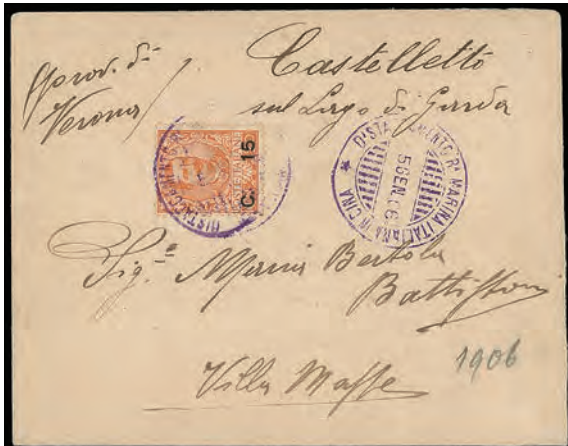 (prov. di Verona)
Castelletto
sul Lago di Garda
C. 15
DISTACCAMENTO R
DISTACCAMENTO Rª MARINA ITALIANA IN CINA
5 GEN. 06
Sig.ª Maria Bertola
Battistoni
Villa Maffe
1906